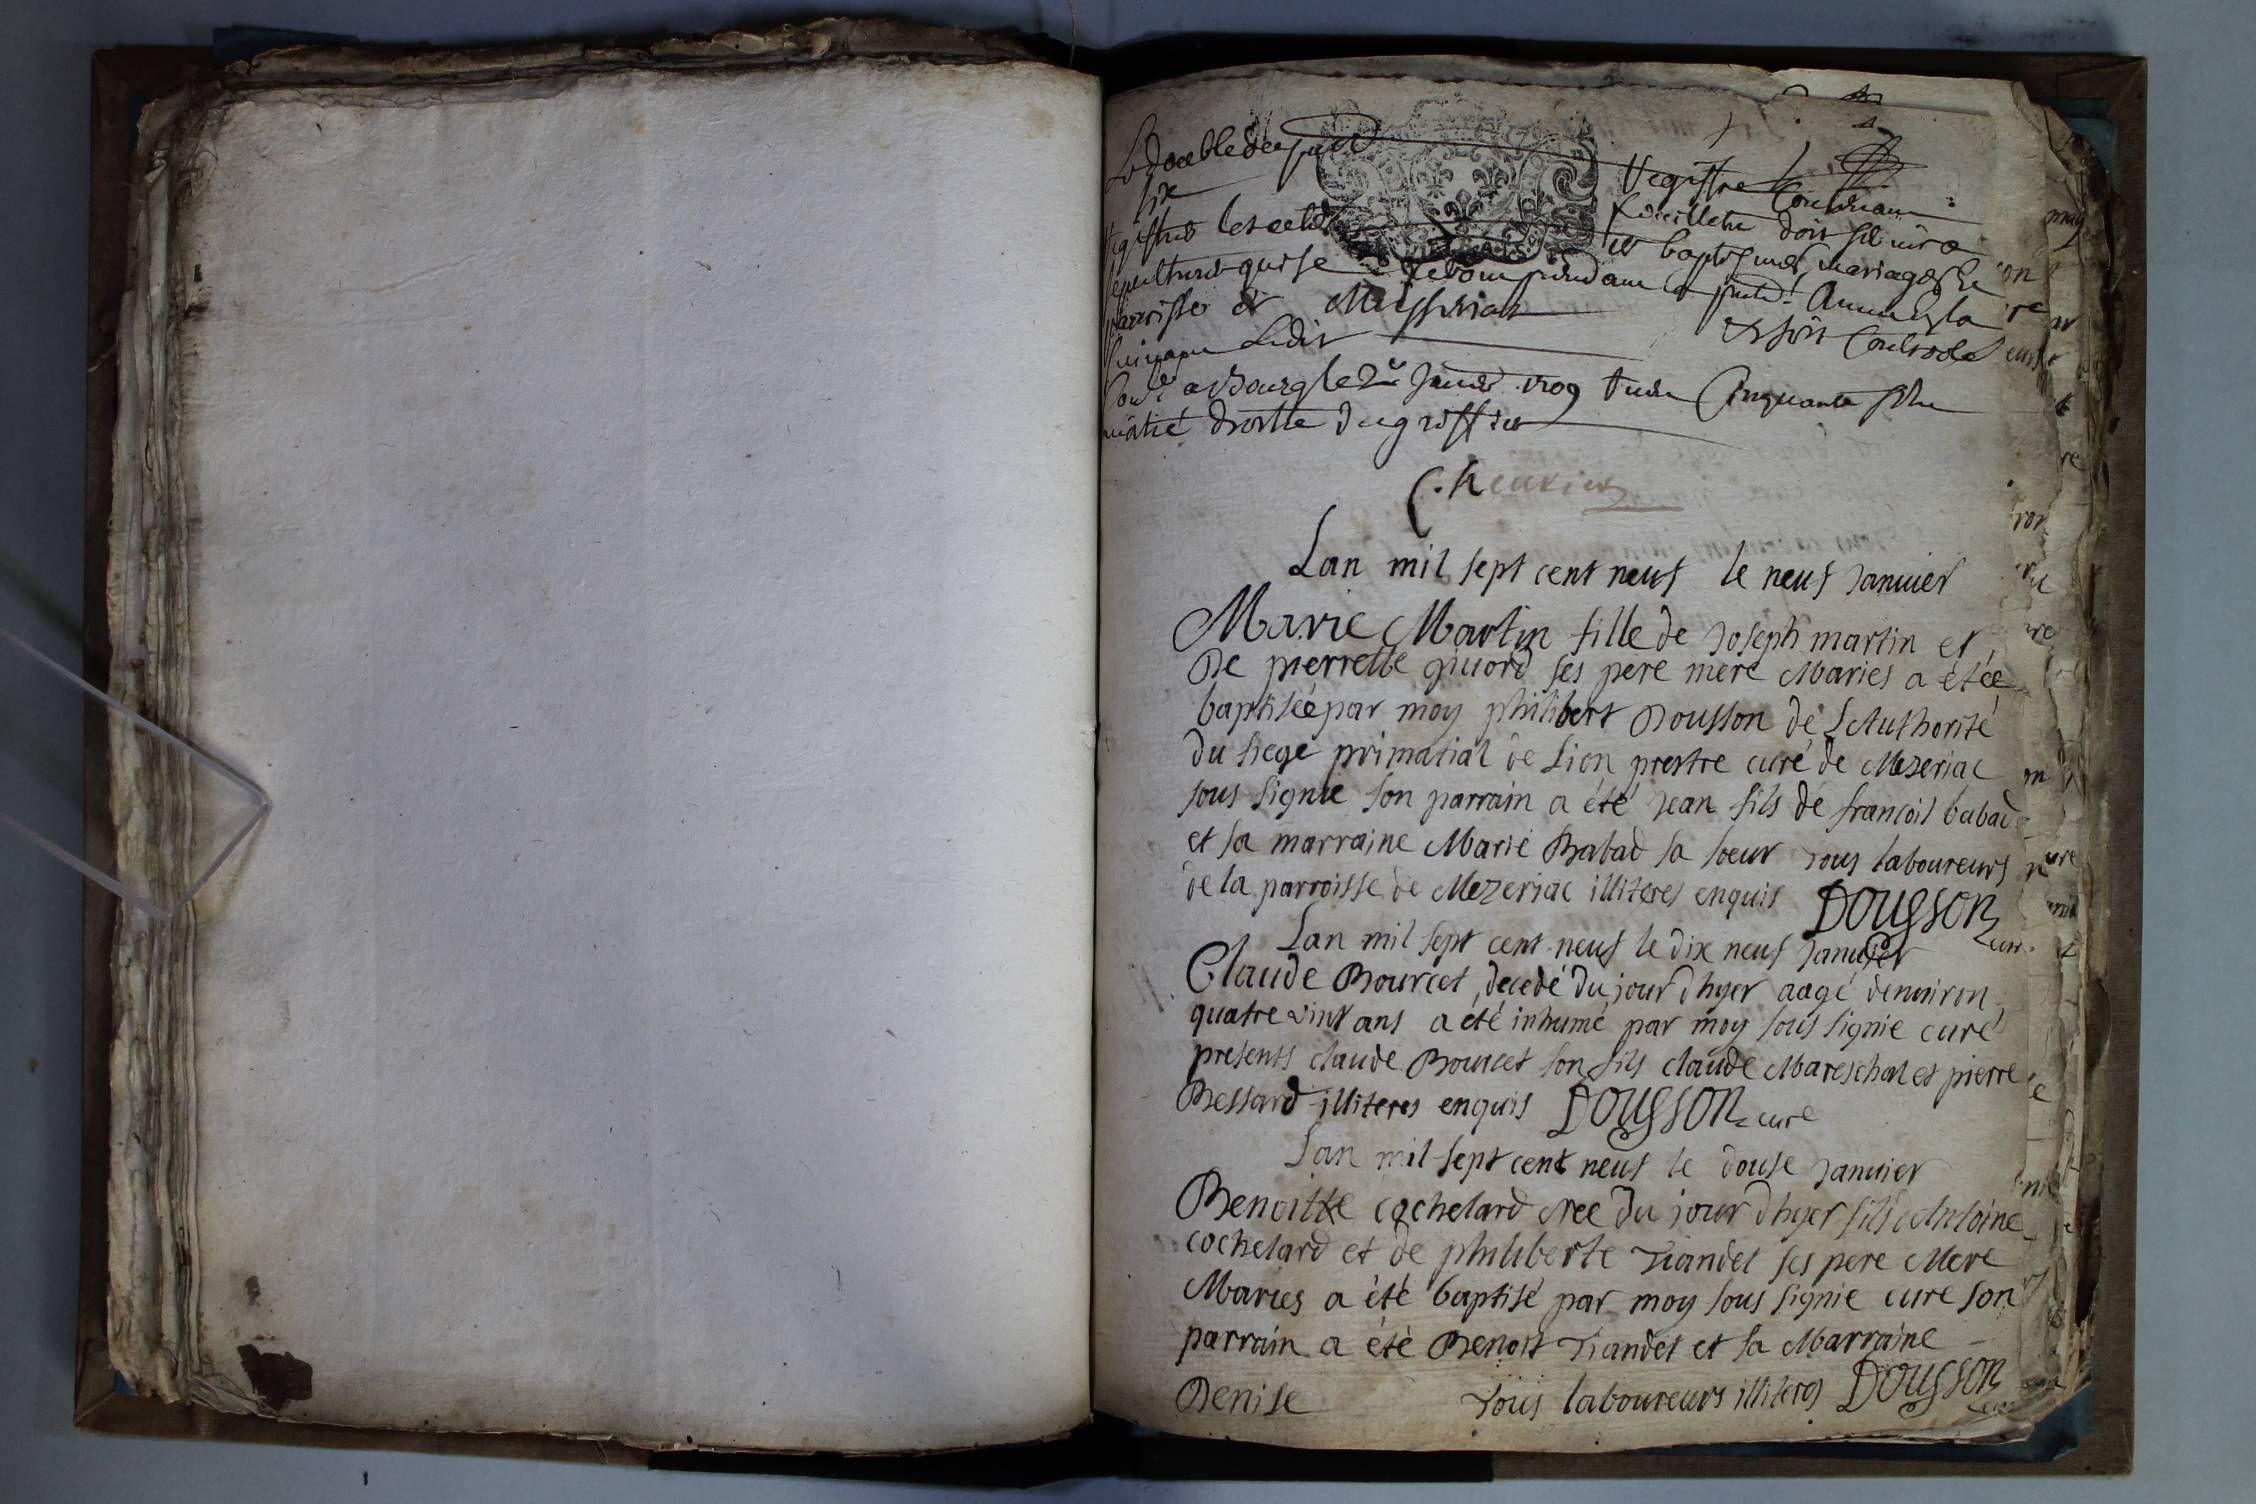 Le double du
six
registres les actes
sepultures qui se
parroisse de Messeriat
Registre Contenant
feuillets doit servir a
et baptesmes, mariages &
feront pendant la pnte Annee en la
& sera Controlé
a Bourg le 2e Janvier 1709 Cinquante solz
moitié droitte du greffier
Cheurier
Lan mil sept cent neuf le neuf Janvier
Marie Martin fille de Joseph martin et
De pierrette giuord ses pere mere Maries a étée
baptisée par moy philibert Dousson de LAuthorité
du siege primatial de Lion prestre curé de Mezeriac
sous signie son parrain a été Jean fils de francois babad
et sa marraine Marie Babad sa soeur tous laboureurs
de la parroisse de Mezeriac illiteres enquis DOUSSON
cur.
Lan mil sept cent neuf le dix neuf Januier
Claude Bourcet, decedé du jour dhyer aagé denuiron
quatre vint ans a été inhumé par moy sous signie curé
presents claude Bourcet son fils claude Mareschal et pierre
Bessard illiteres enquis DOUSSON cure
Lan mil sept cent neuf le douse Januier
Benoitte cochelard nee du jour dhyer fils dAntoine
cochelard et de philiberte Tiandet ses pere Mere
Maries a été baptisé par moy sous signie cure son
parrain a été Benoit Tiandet et sa Marraine
Denise tous laboureurs illiteres DOUSSON